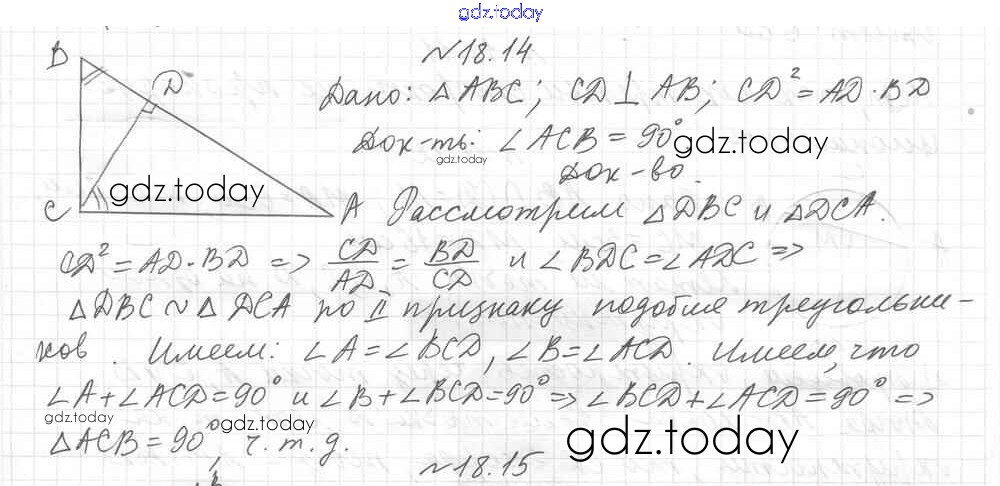 gdz.today
№18.14
B
D
Дано: △ABC; CD⊥AB; CD²=AD·BD
Док-ть: ∠ACB=90°
gdz.today
gdz.today
Док-во.
gdz.today
C
A
Рассмотрим △DBC и △DCA.
CD²=AD·BD => CD/AD = BD/CD и ∠BDC=∠ADC =>
△DBC ~ △DCA по II признаку подобия треугольни-
ков. Имеем: ∠A=∠BCD, ∠B=∠ACD. Имеем, что
∠A+∠ACD=90° и ∠B+∠BCD=90° => ∠BCD+∠ACD=90° =>
gdz.today
gdz.today
gdz.today
△ACB=90°, ч.т.д.
№18.15